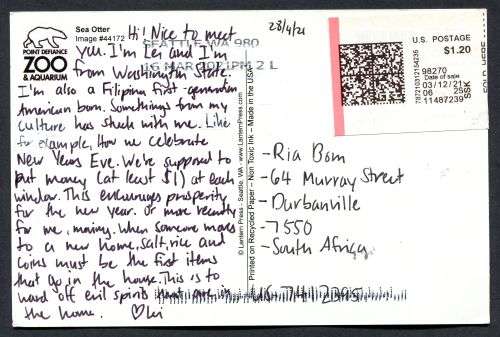 Sea Otter
Image #44172
POINT DEFIANCE
ZOO
& AQUARIUM
28/4/21
SEATTLE WA 980
16 MAR 2021 PM 2 L
Hi! Nice to meet
you. I'm Lei and I'm
from Washington State.
I'm also a Filipina first-generation
American born. Somethings from my
culture has stuck with me. Like
for example, How we celebrate
New Years Eve. We're supposed to
put money (at least $1) at each
window. This encourages prosperity
for the new year. Or more recently
for me, moving. When someone moves
to a new home, salt, rice and
coins must be the first items
that go in the house. This is to
ward off evil spirits that are in
the home. ♡Lei
© Lantern Press - Seattle, WA - www.LanternPress.com
Printed on Recycled Paper - Non Toxic Ink - Made in the USA
U.S. POSTAGE
$1.20
98270
Date of sale
03/12/21
06 2S
11487239
SSK
- Ria Bom
- 64 Murray Street
- Durbanville
- 7550
- South Africa
US-7412395